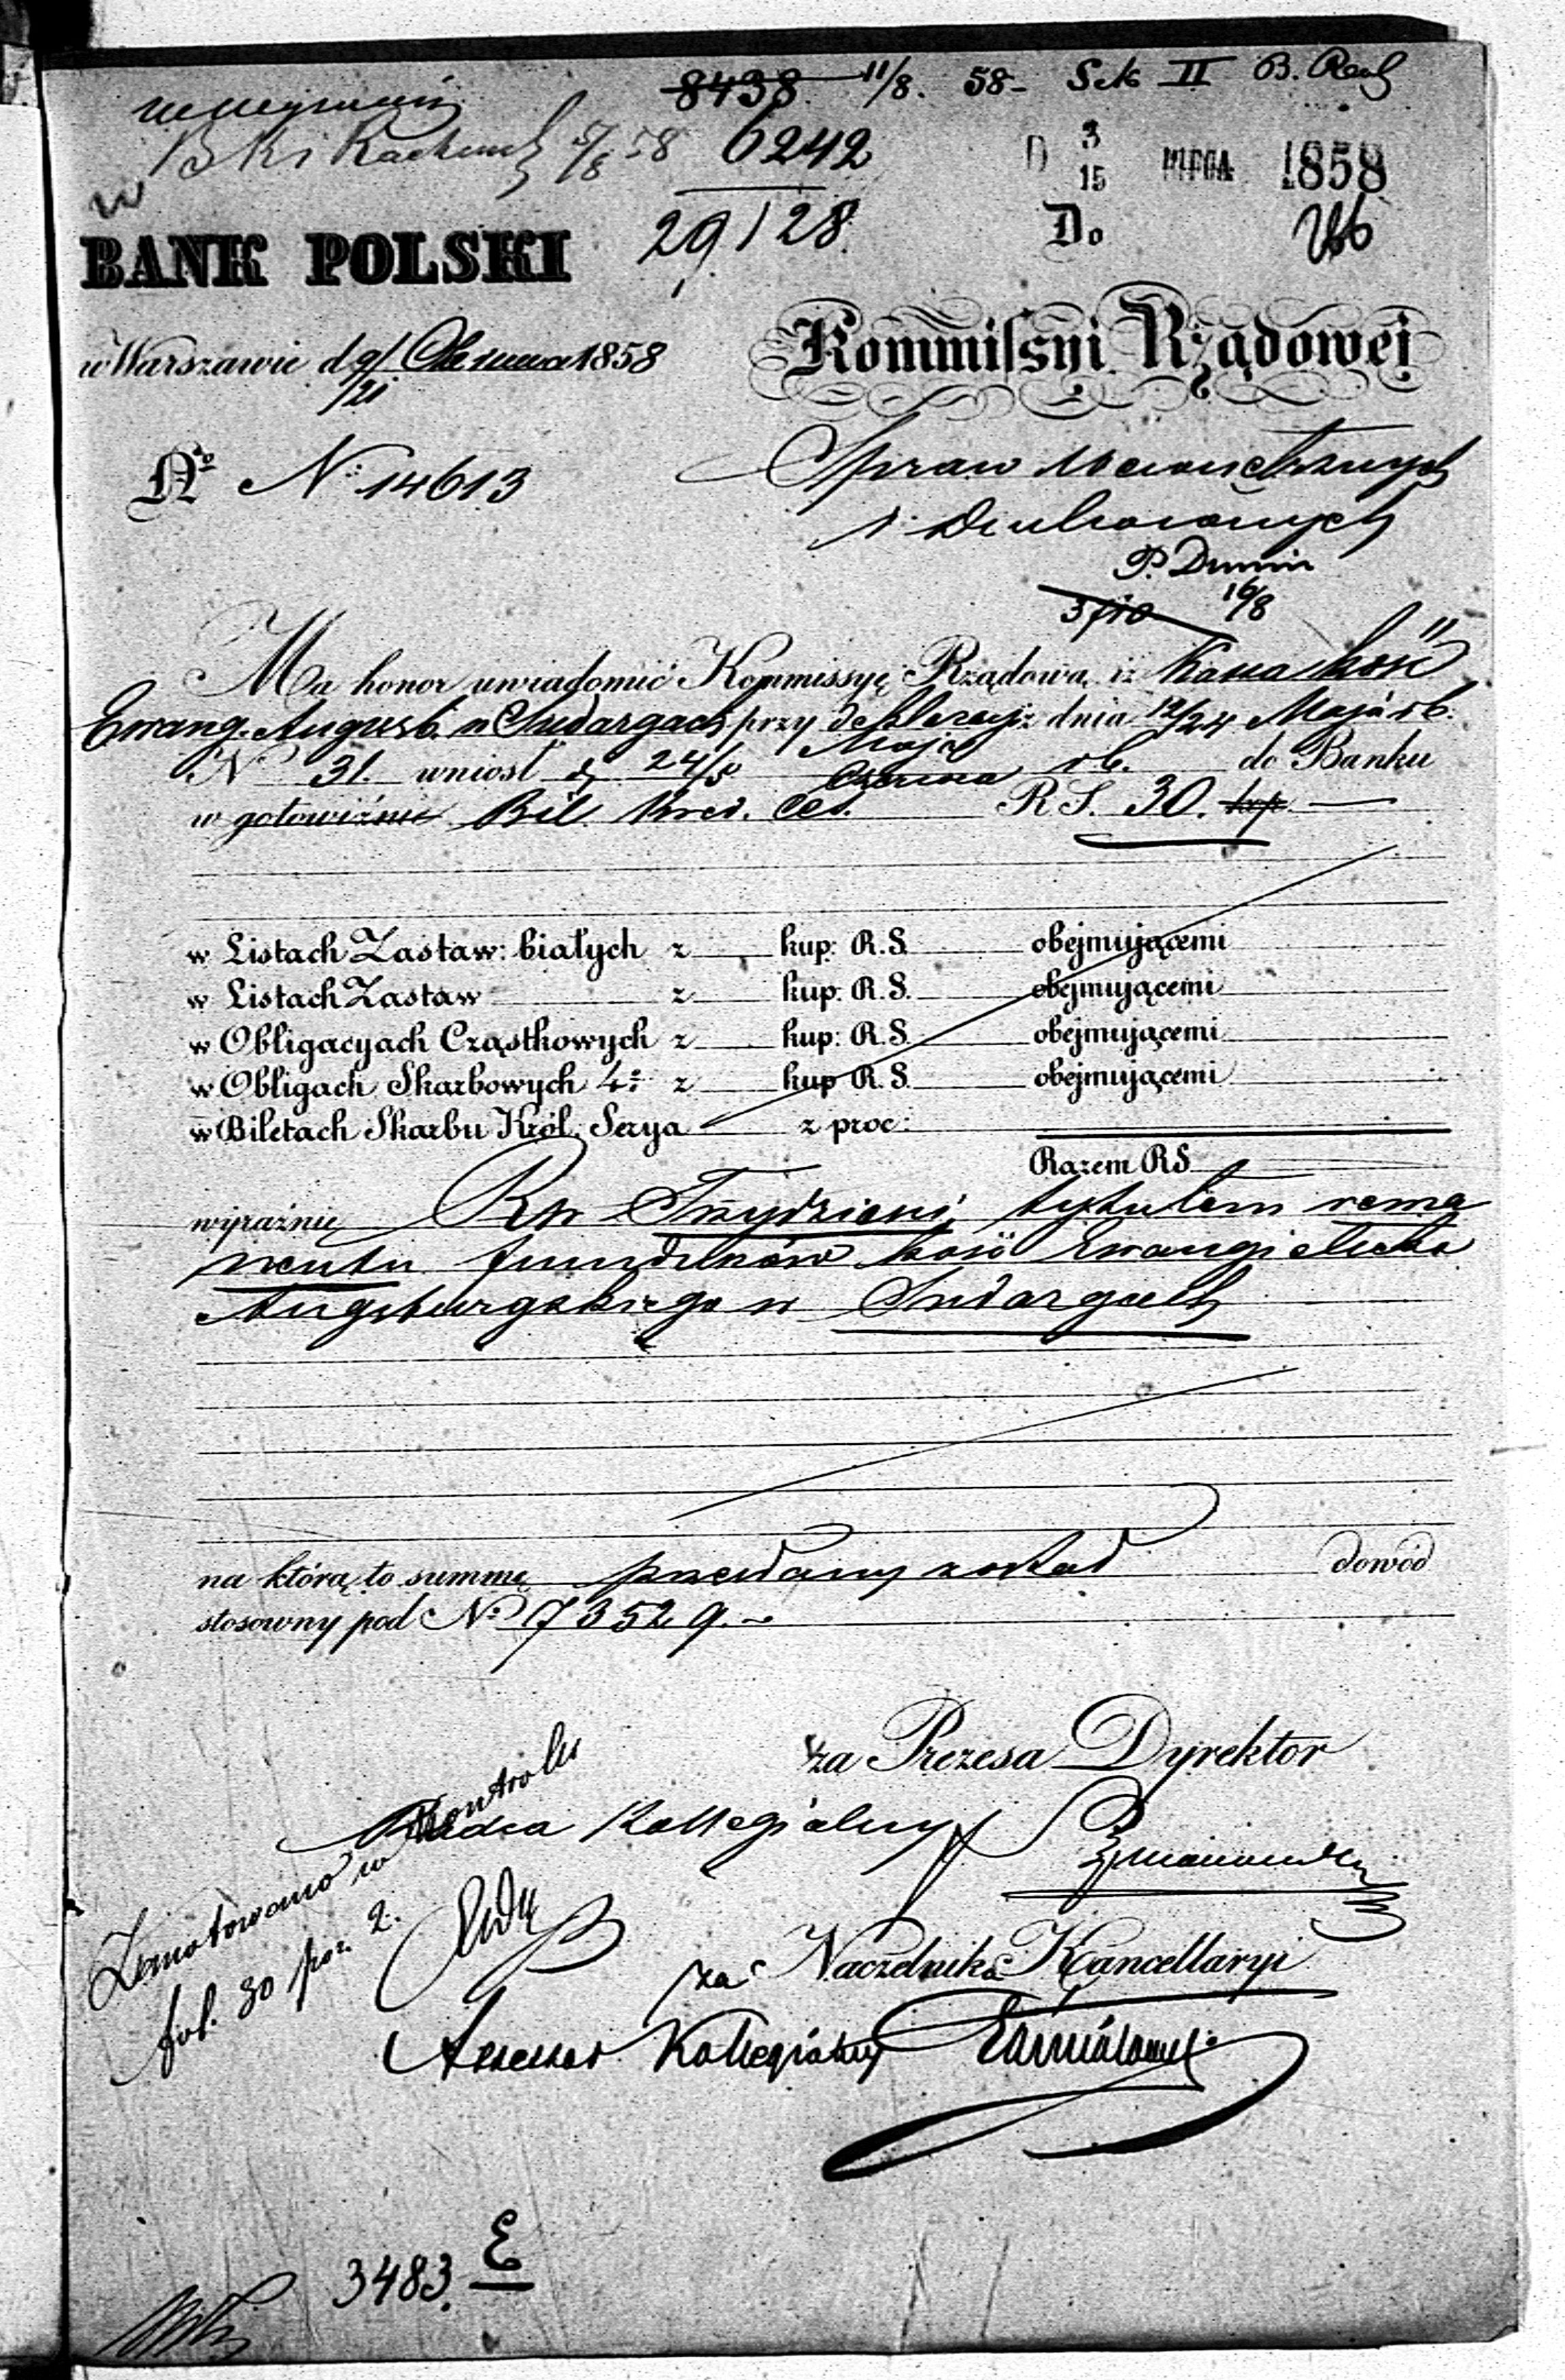 8438 11/8. 58 - Sek II B.
58 6242
3/15 1858
29/128.
Do
266
BANK POLSKI
w Warszawie d 9/21 Czerwca 1858
Kommissyi Rządowej
No N: 14613
Spraw Wewnętrznych
i Duchownych
P. Dunin
16/8
Ma honor uwiadomić Kommissyę Rządową, iż Kassa Kość
Ewang. Augsb. w Sudargach przy deklaracyi z dnia 12/24 Maja rb.
N 31. wniosł d 24/5 Maja Czerwca rb. do Banku
w gotowiźnie Bil. Kred. Ces. RS. 30. kop. —
w Listach Zastaw: białych z kup: R.S. obejmującemi
w Listach Zastaw z kup: R.S. obejmującemi
w Obligacyach Cząstkowych z kup: R.S. obejmującemi
w Obligach Skarbowych 4% z kup R.S. obejmującemi
w Biletach Skarbu Król: Serya z proc:
Razem RS
wyraźnie Rsr Trzydzieści, tytułem rema
nentu funduszów kość Ewangielicko
Augsburgskiego w Sudargach
na którą to summę przesłany został dowód
stosowny pod N: 73529.
za Prezesa Dyrektor
Radca Kollegialny
Zanotowano w Kontroli
fol. 30 poz. 2.
za Naczelnika Kancellaryi
Assessor Kollegialny
3483. E